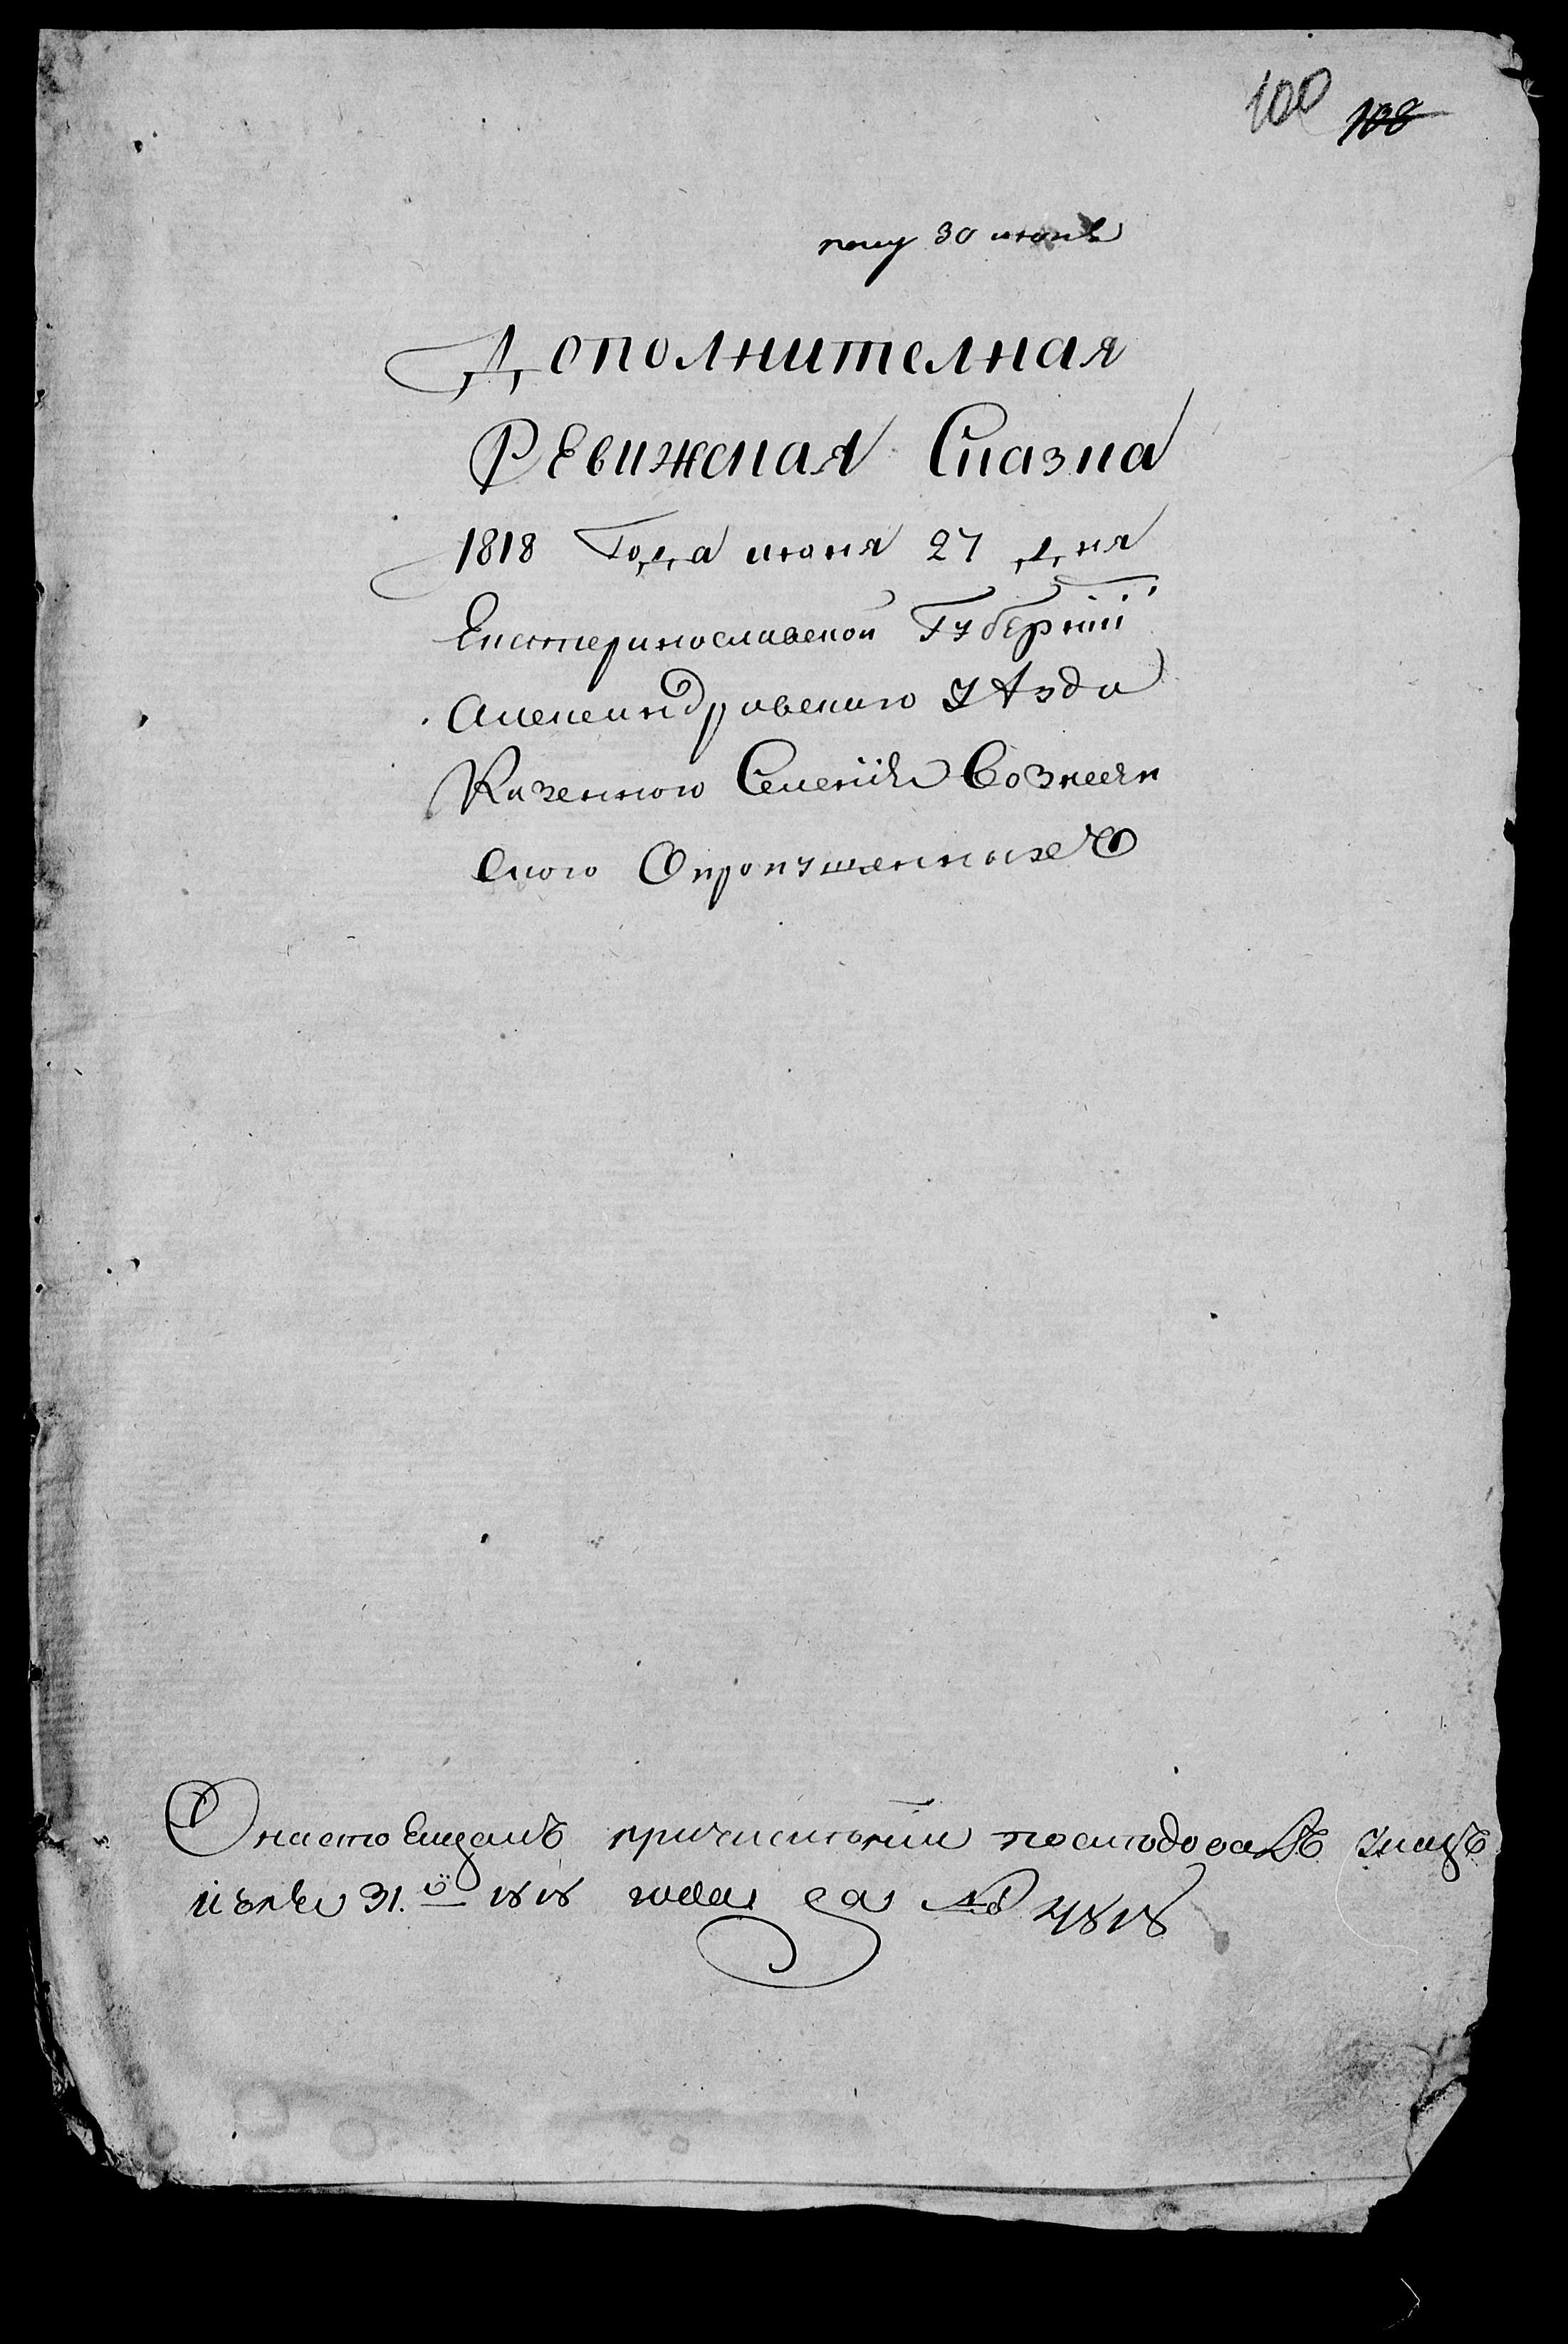 100 108
полу 30 июня
Дополнителная
Ревижская Сказка
1818 Года июня 27 дня
Екатеринославской Губернїи
Александровского уѣзда
Казенного Селенїя Вознесен
ского Опропущенныхъ
О настоещемъ причислении последовалъ указъ
31. 1818 года за № 4818